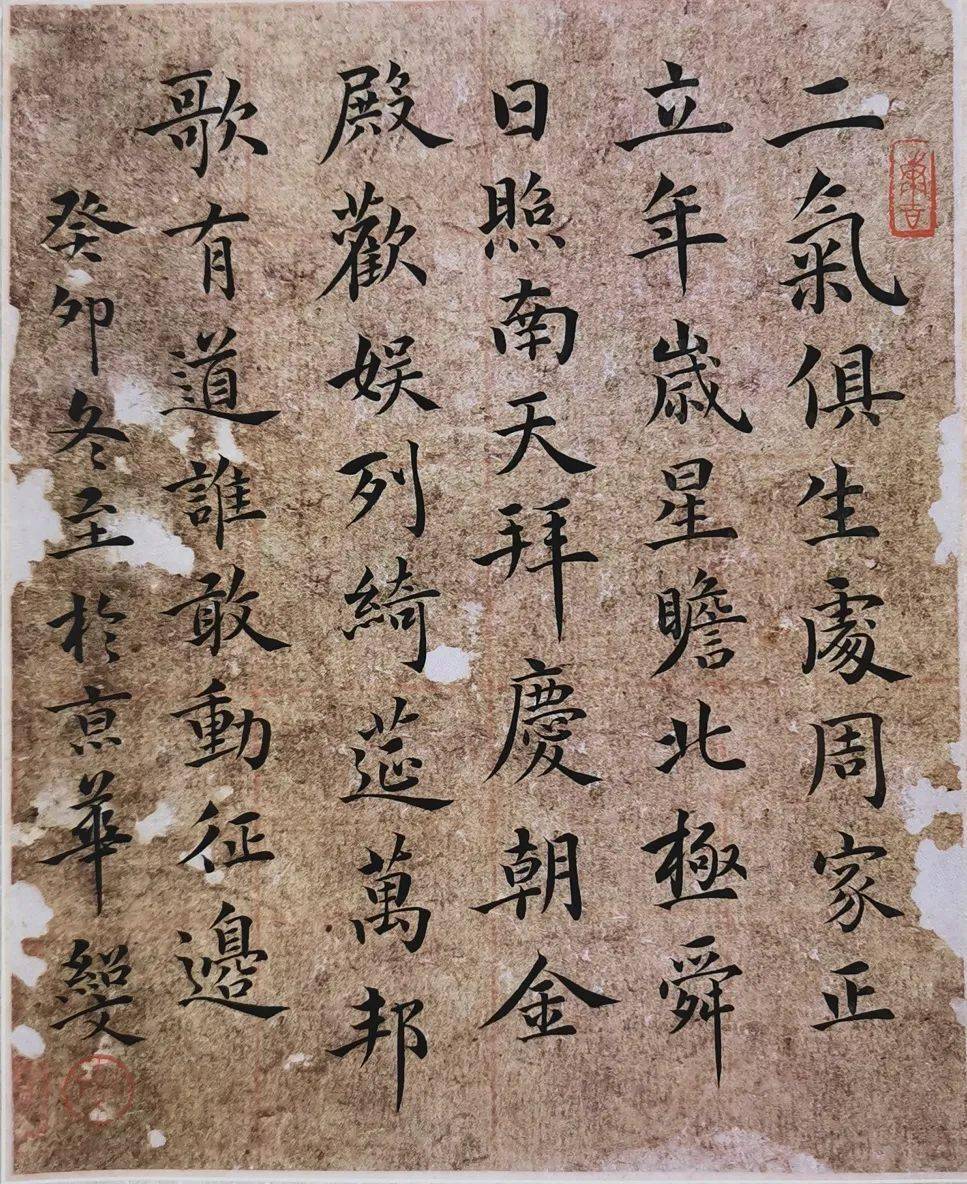 二氣俱生處周家正
立年歲星瞻北極舜
日照南天拜慶朝金
殿歡娱列綺莚萬邦
歌有道誰敢動征邊
癸卯冬至於京華